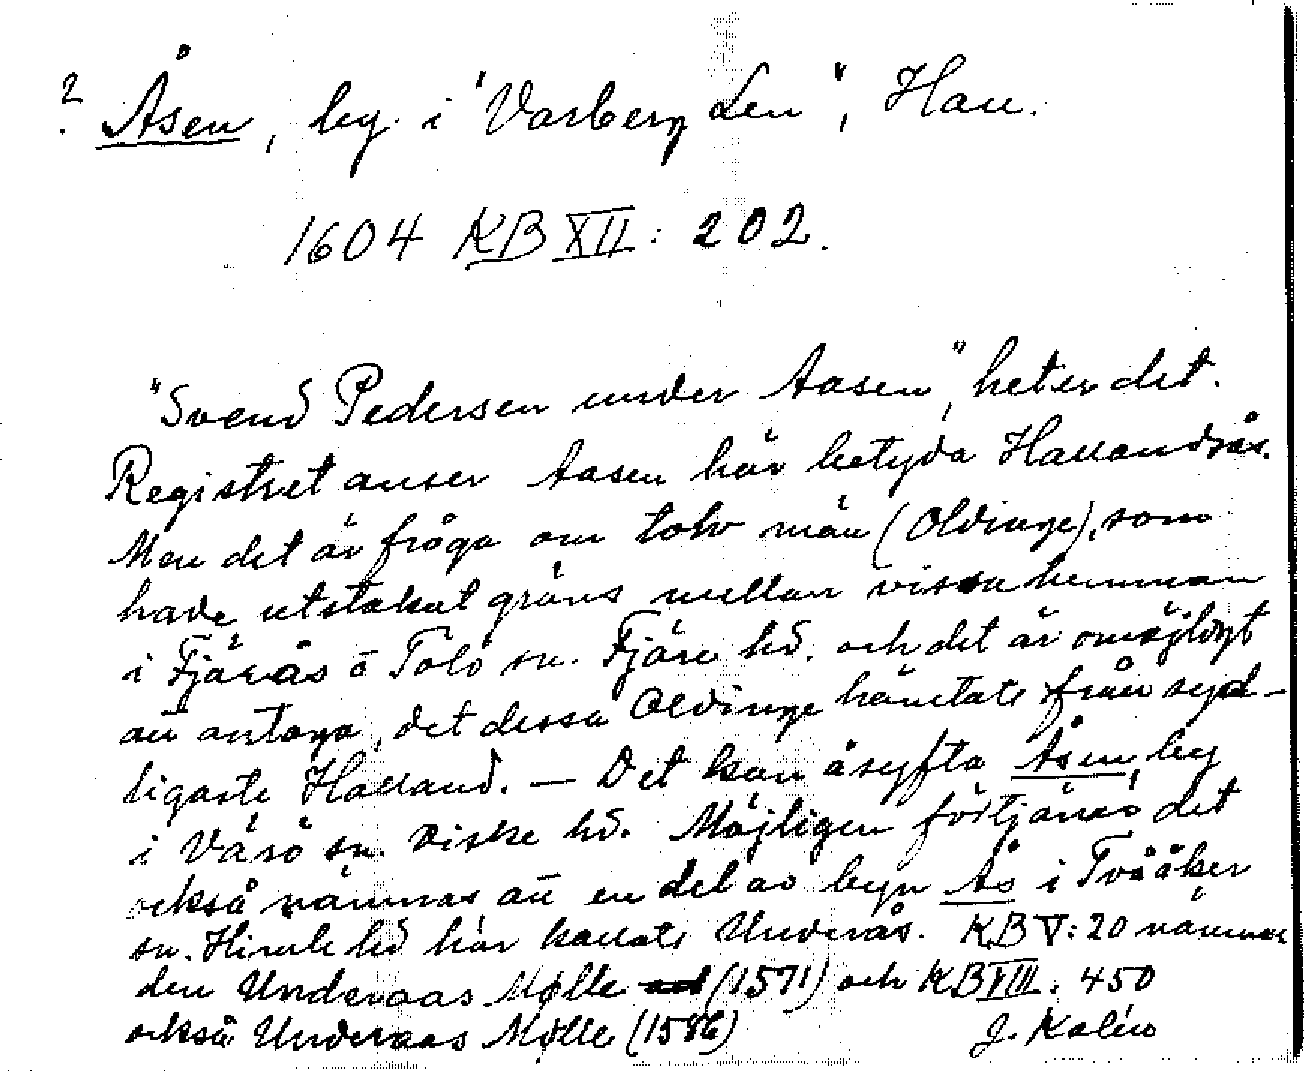 ? Åsen, by i "Varberg Len", Hall.
1604 KB XII: 202.
"Svend Pedersen under Aasen", heter det.
Registret anser Aasen här betyda Hallandsås.
Men det är fråga om tolv män (Oldinge), som
hade utstakat gräns mellan vissa hemman
i Fjärås o Tölö sn. Fjäre hd. och det är omöjligt
att antaga, det dessa Oldinge hämtats från syd-
ligaste Halland. — Det kan åsyfta Åsen, by
i Värö sn. Viske hd. Möjligen förtjänas det
också nämnas att en del av byn Ås i Tvååker
sn. Himle hd har kallats Underås. KB V: 20 nämner
den Underaas Mølle (1571) och KB VIII: 450
också Underaas Mølle (1586)
J. Kalén